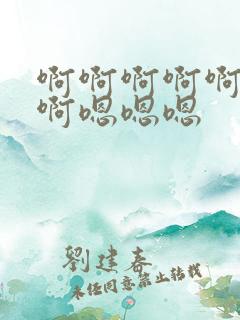 啊啊啊啊啊
啊嗯嗯嗯
劉建春
未经同意禁止转载